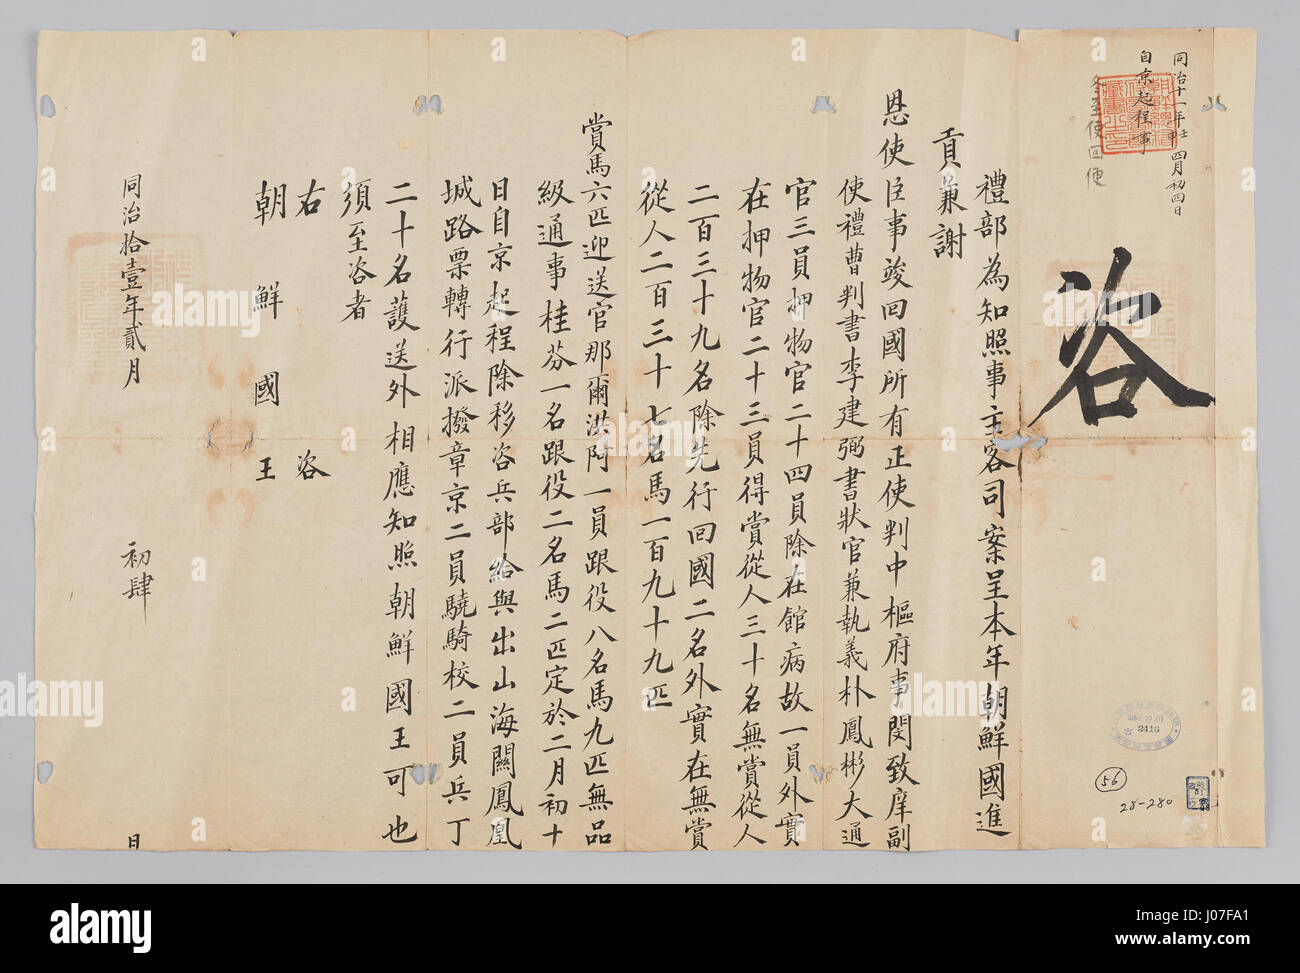 同治十一年壬申四月初四日
自京起程事
冬至使回便
咨
禮部為知照事主客司案呈本年朝鮮國進
貢兼謝
恩使臣事竣回國所有正使判中樞府事閔致庠副
使禮曹判書李建弼書狀官兼執義朴鳳彬大通
官三員押物官二十四員除在館病故一員外實
在押物官二十三員得賞從人三十名無賞從人
二百三十九名除先行回國二名外實在無賞
從人二百三十七名馬一百九十九匹
賞馬六匹迎送官那爾洪阿一員跟役八名馬九匹無品
級通事桂芬一名跟役二名馬二匹定於二月初十
日自京起程除移咨兵部給與出山海關鳳凰
城路票轉行派撥章京二員驍騎校二員兵丁
二十名護送外相應知照朝鮮國王可也
須至咨者
右 咨
朝鮮國王
同治拾壹年貳月 初肆 日
2416
56
28-280
a alamy stock photo
J07FA1
www.alamy.com